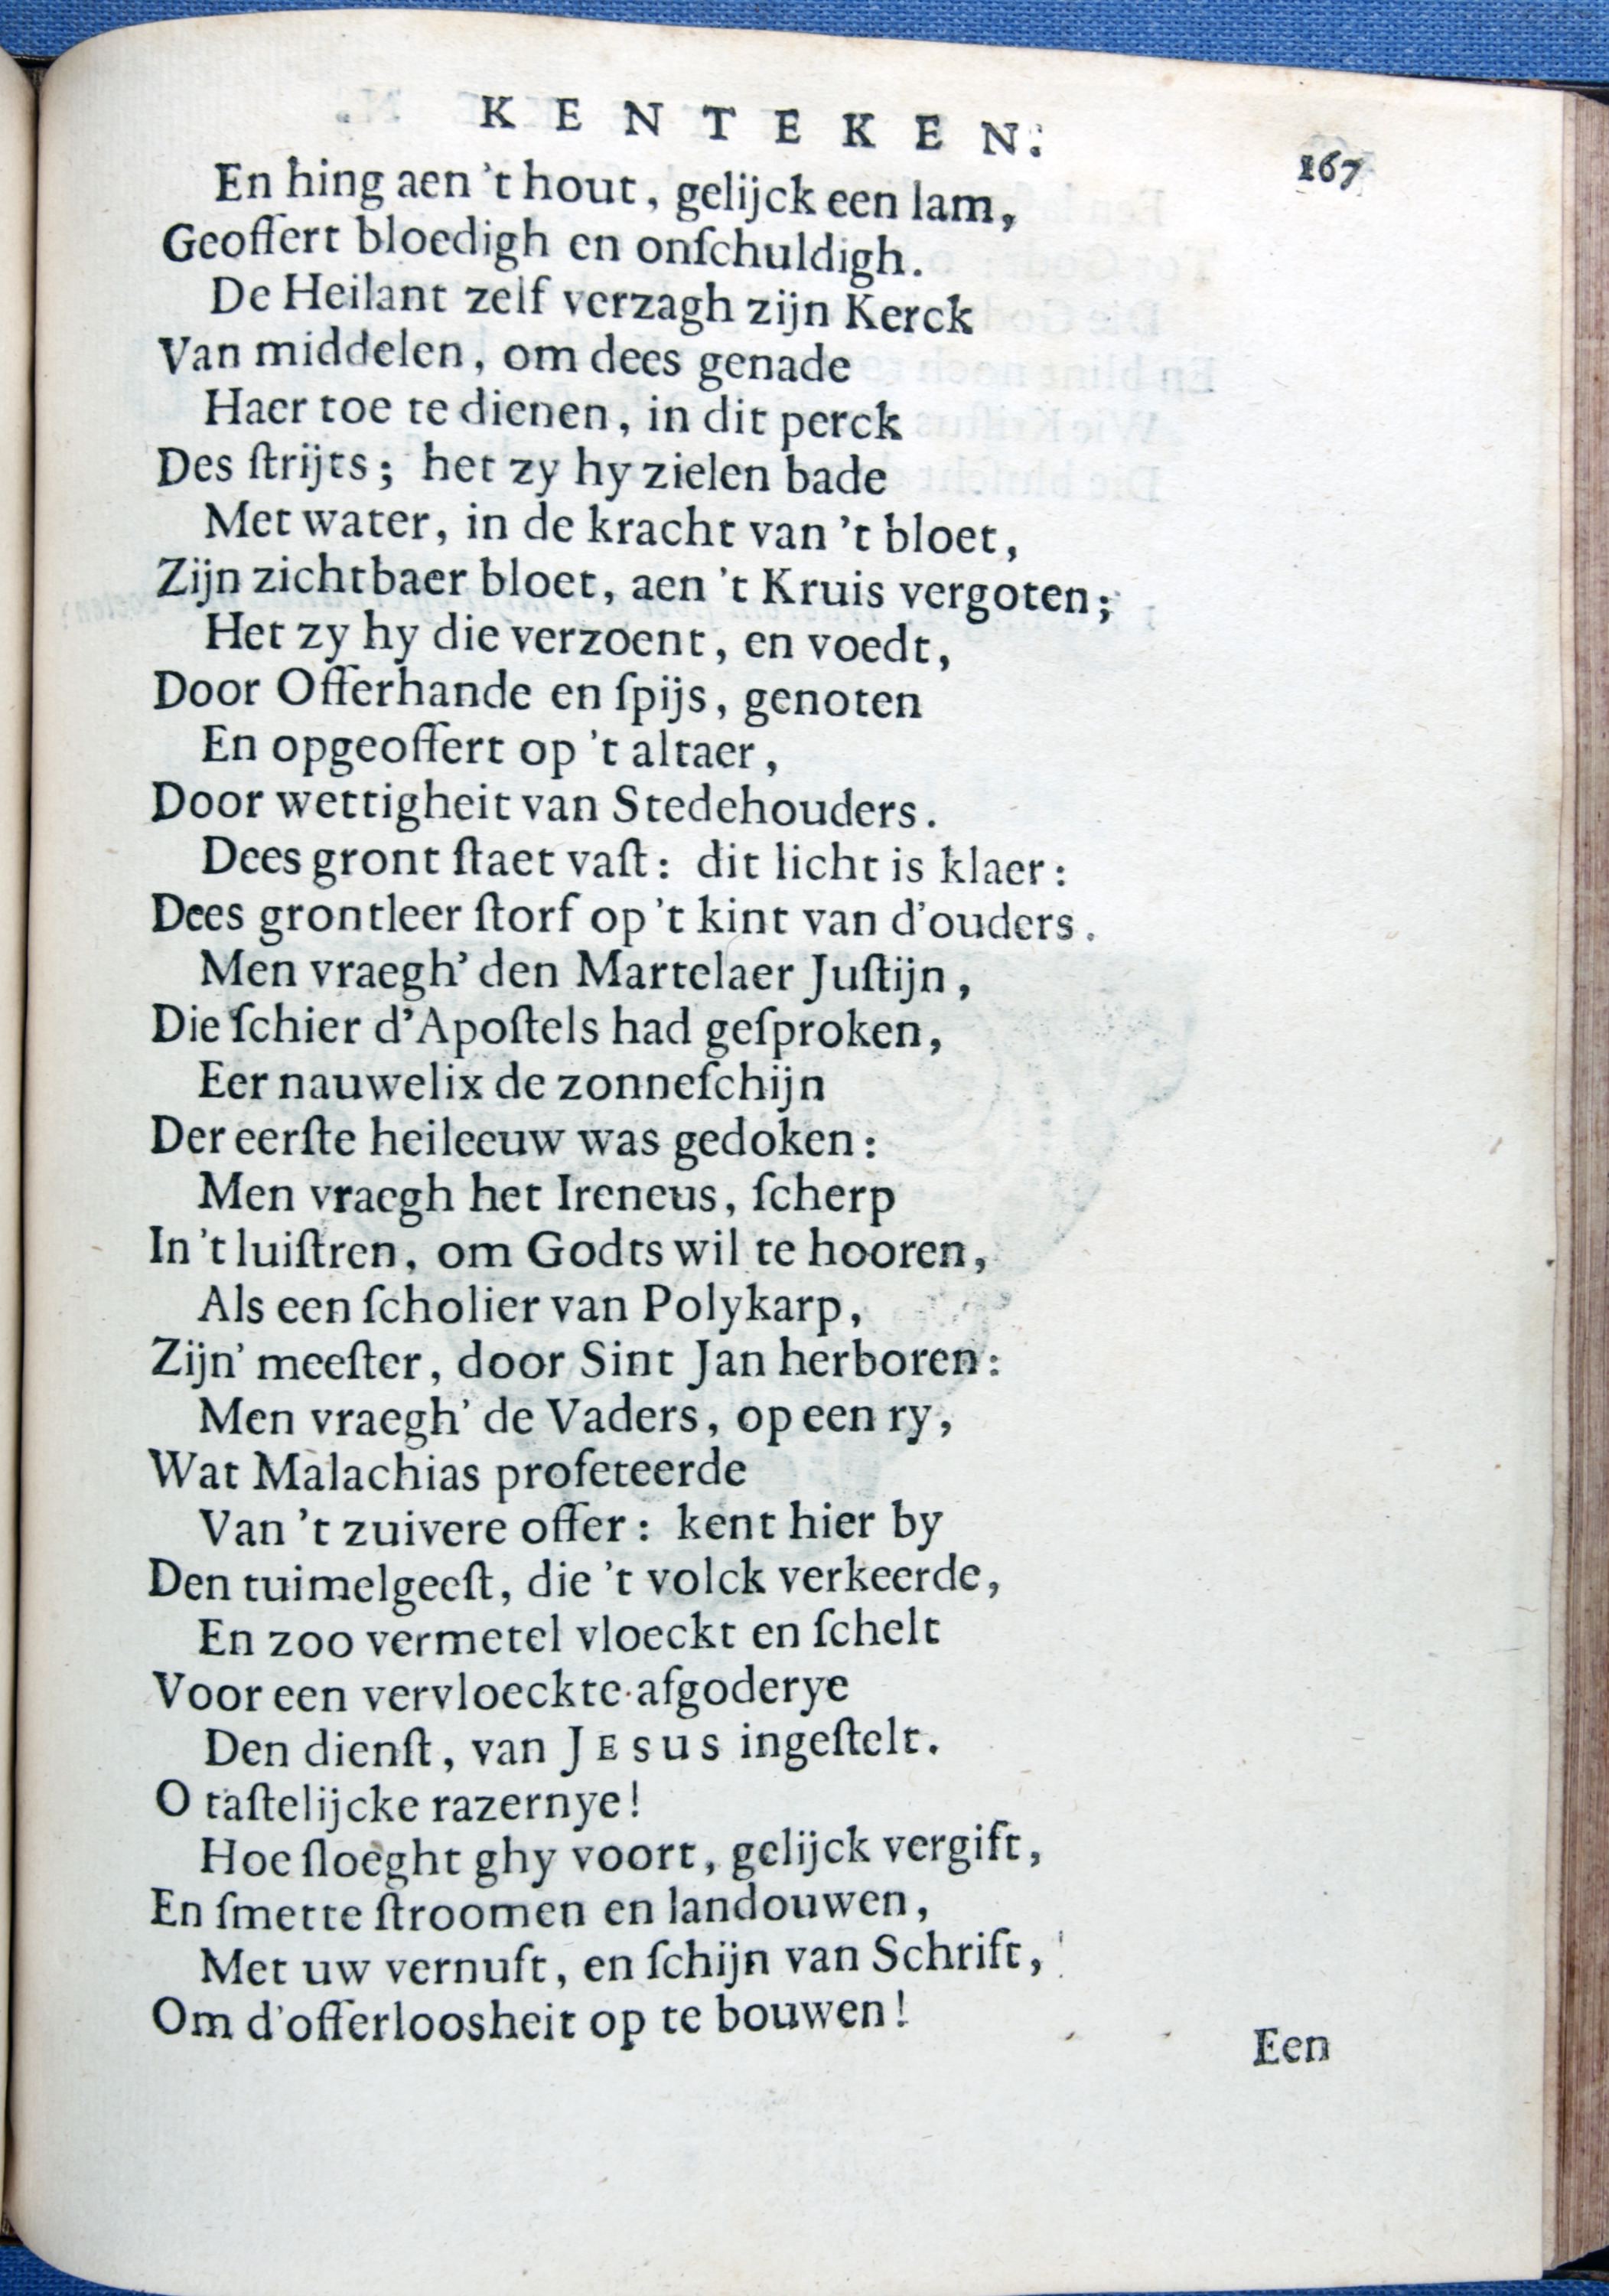 KENTEKEN. 167
En hing aen 't hout, gelijck een lam,
Geoffert bloedigh en onſchuldigh.
De Heilant zelf verzagh zijn Kerck
Van middelen, om dees genade
Haer toe te dienen, in dit perck
Des ſtrijts; het zy hy zielen bade
Met water, in de kracht van 't bloet,
Zijn zichtbaer bloet, aen 't Kruis vergoten;
Het zy hy die verzoent, en voedt,
Door Offerhande en ſpijs, genoten
En opgeoffert op 't altaer,
Door wettigheit van Stedehouders.
Dees gront ſtaet vaſt: dit licht is klaer:
Dees grontleer ſtorf op 't kint van d'ouders.
Men vraegh' den Martelaer Juſtijn,
Die ſchier d'Apoſtels had geſproken,
Eer nauwelix de zonneſchijn
Der eerſte heileeuw was gedoken:
Men vraegh het Ireneus, ſcherp
In 't luiſtren, om Godts wil te hooren,
Als een ſcholier van Polykarp,
Zijn' meeſter, door Sint Jan herboren:
Men vraegh' de Vaders, op een ry,
Wat Malachias profeteerde
Van 't zuivere offer: kent hier by
Den tuimelgeeſt, die 't volck verkeerde,
En zoo vermetel vloeckt en ſchelt
Voor een vervloeckte afgoderye
Den dienſt, van JESUS ingeſtelt.
O taſtelijcke razernye!
Hoe ſloeght ghy voort, gelijck vergift,
En ſmette ſtroomen en landouwen,
Met uw vernuft, en ſchijn van Schrift,
Om d'offerloosheit op te bouwen!
Een